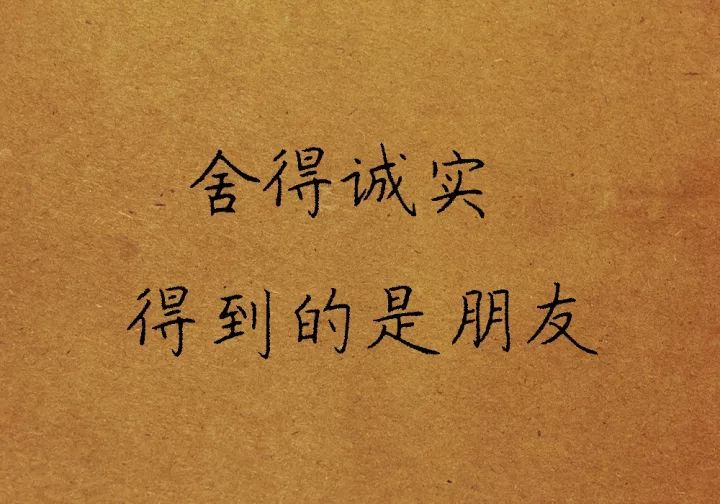 舍得诚实
得到的是朋友